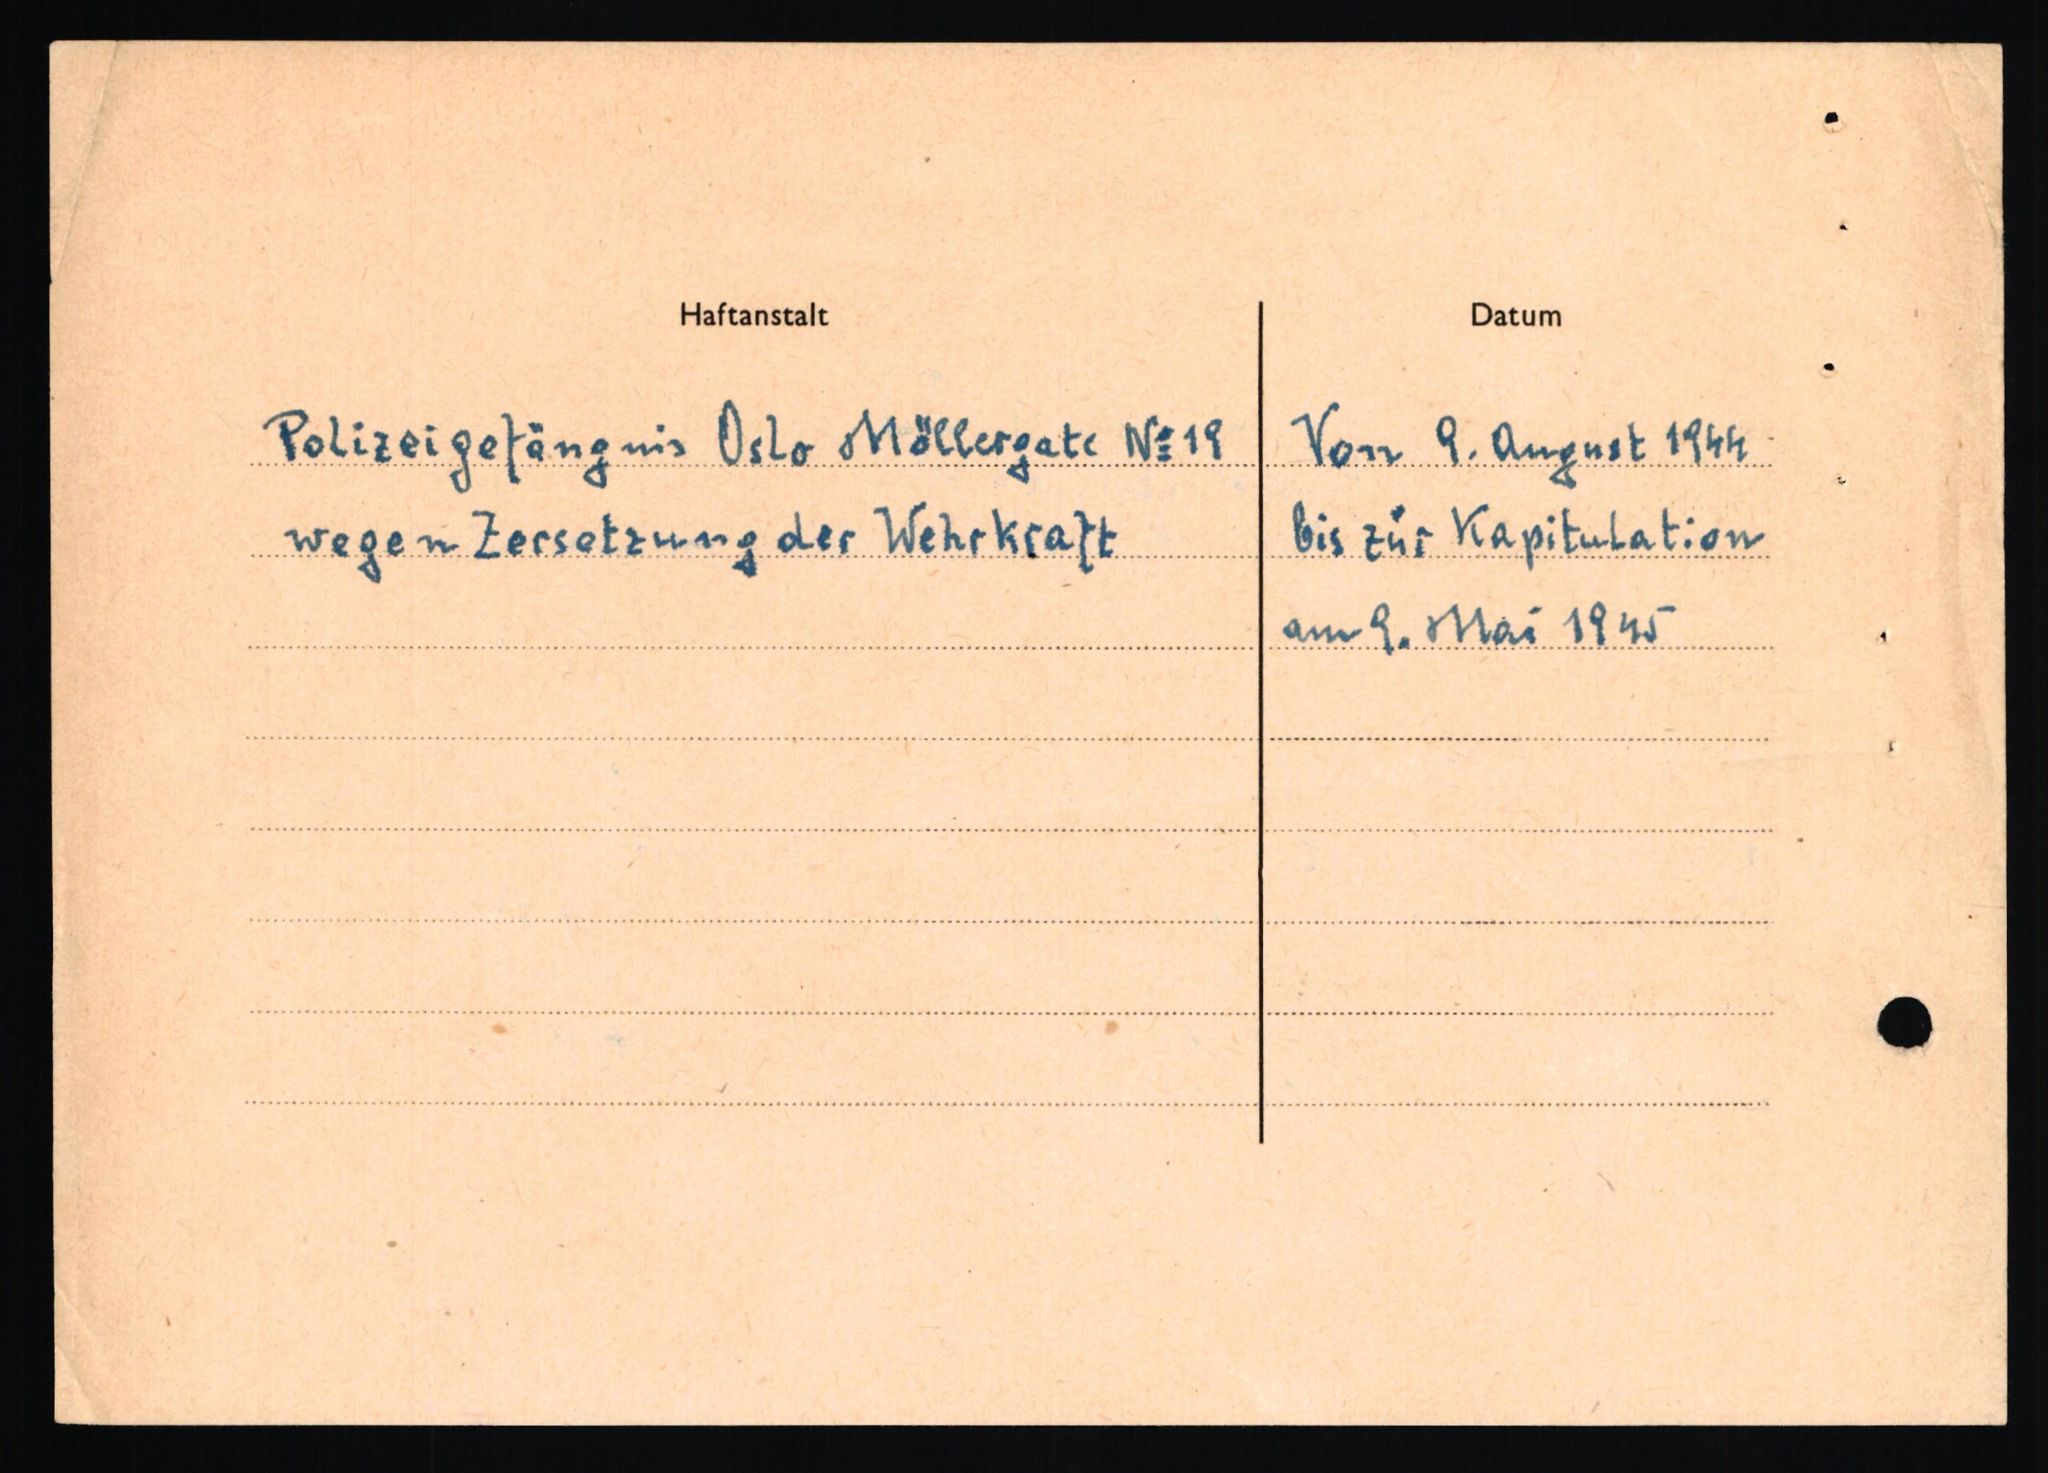 Haftanstalt Datum
Polizeigefängnis Oslo Möllergate No 19 Von 9. August 1944
wegen Zersetzung der Wehrkraft bis zur Kapitulation
am 9. Mai 1945